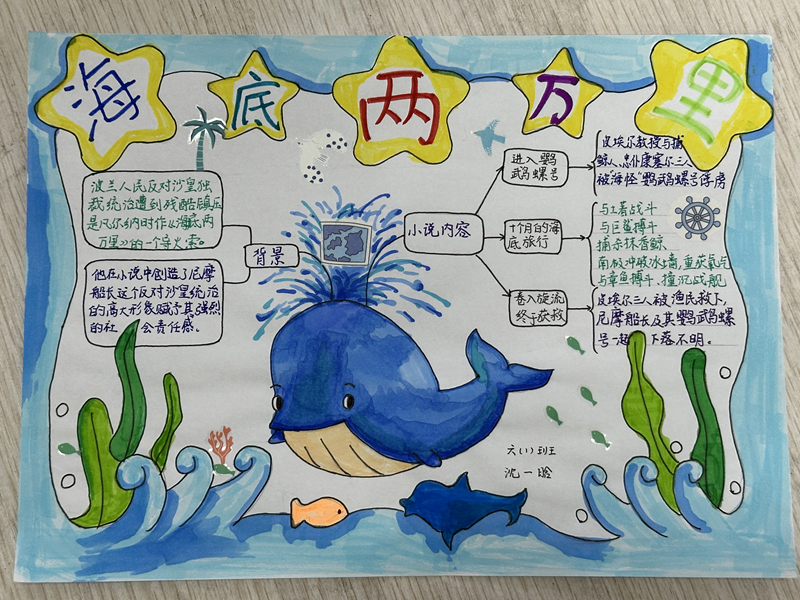 海底两万里
波兰人民反对沙皇独
裁统治遭到残酷镇压
是凡尔纳时作《海底两
万里》的一个导火索。
背景
他在小说中创造了尼摩
船长这个反对沙皇统治
的高大形象赋予其强烈
的社会责任感。
小说内容
进入鹦
鹉螺号
皮埃尔教授与捕
鲸人、忠仆康塞尔三人
被"海怪"鹦鹉螺号俘房
十个月的海
底旅行
与土著战斗
与巨鲨搏斗
捕杀抹香鲸
南极冲破冰墙,重获氧气
与章鱼搏斗、撞沉战舰
卷入旋流
终于获救
皮埃尔三人被渔民救下,
尼摩船长及其鹦鹉螺
号一起下落不明。
六(1)班
沈一